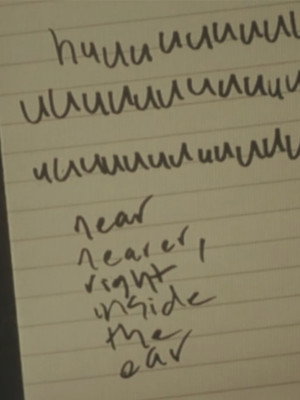 huuuuuuuuu
uuuuuuuuuuuu
uuuuuuuuuuuu
near
nearer,
right
inside
the
ear